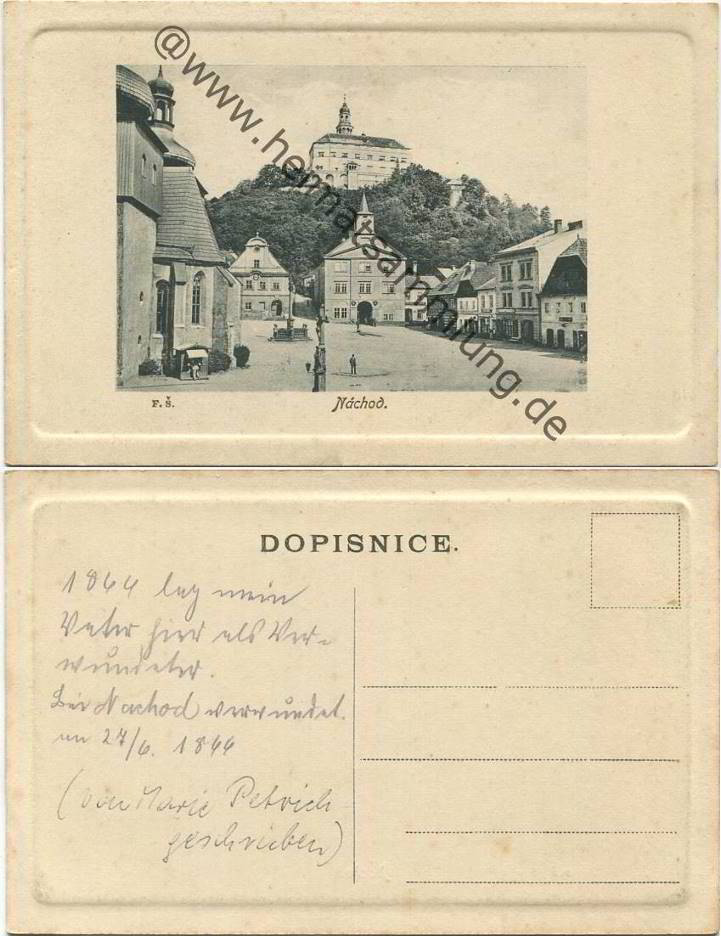 @www.heimatsammlung.de
F. Š.
Náchod.
DOPISNICE.
1866 lag mein
Vater hier als Ver-
wundeter.
Bei Nachod verwundet.
am 27/6. 1866
(von Marie Petrich
geschrieben)